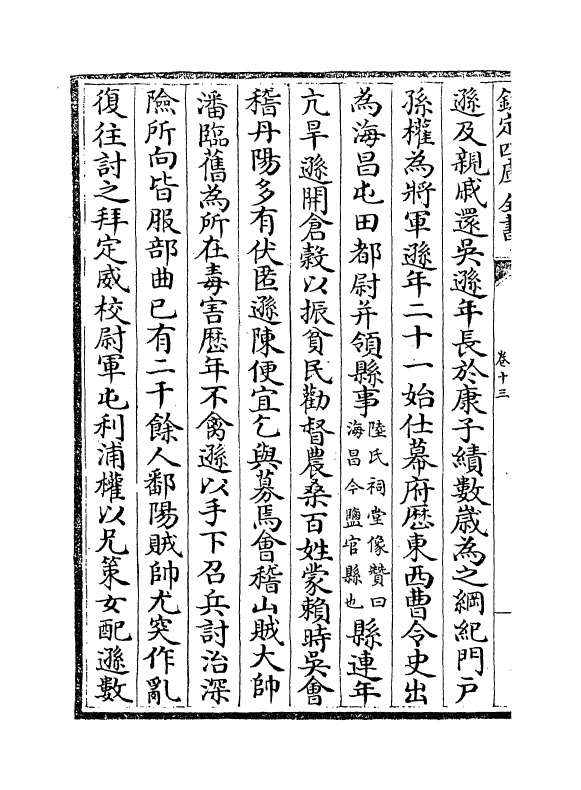 欽定四庫全書
卷十三
遜及親戚還吳遜年長於康子績數歲為之綱紀門戶
孫權為將軍遜年二十一始仕幕府歷東西曹令史出
為海昌屯田都尉并領縣事陸氏祠堂像贊曰海昌今鹽官縣也縣連年
亢旱遜開倉穀以振貧民勸督農桑百姓蒙賴時吳會
稽丹陽多有伏匿遜陳便宜乞與募焉會稽山賊大帥
潘臨舊為所在毒害歷年不禽遜以手下召兵討治深
險所向皆服部曲已有二千餘人鄱陽賊帥尤突作亂
復往討之拜定威校尉軍屯利浦權以兄策女配遜數